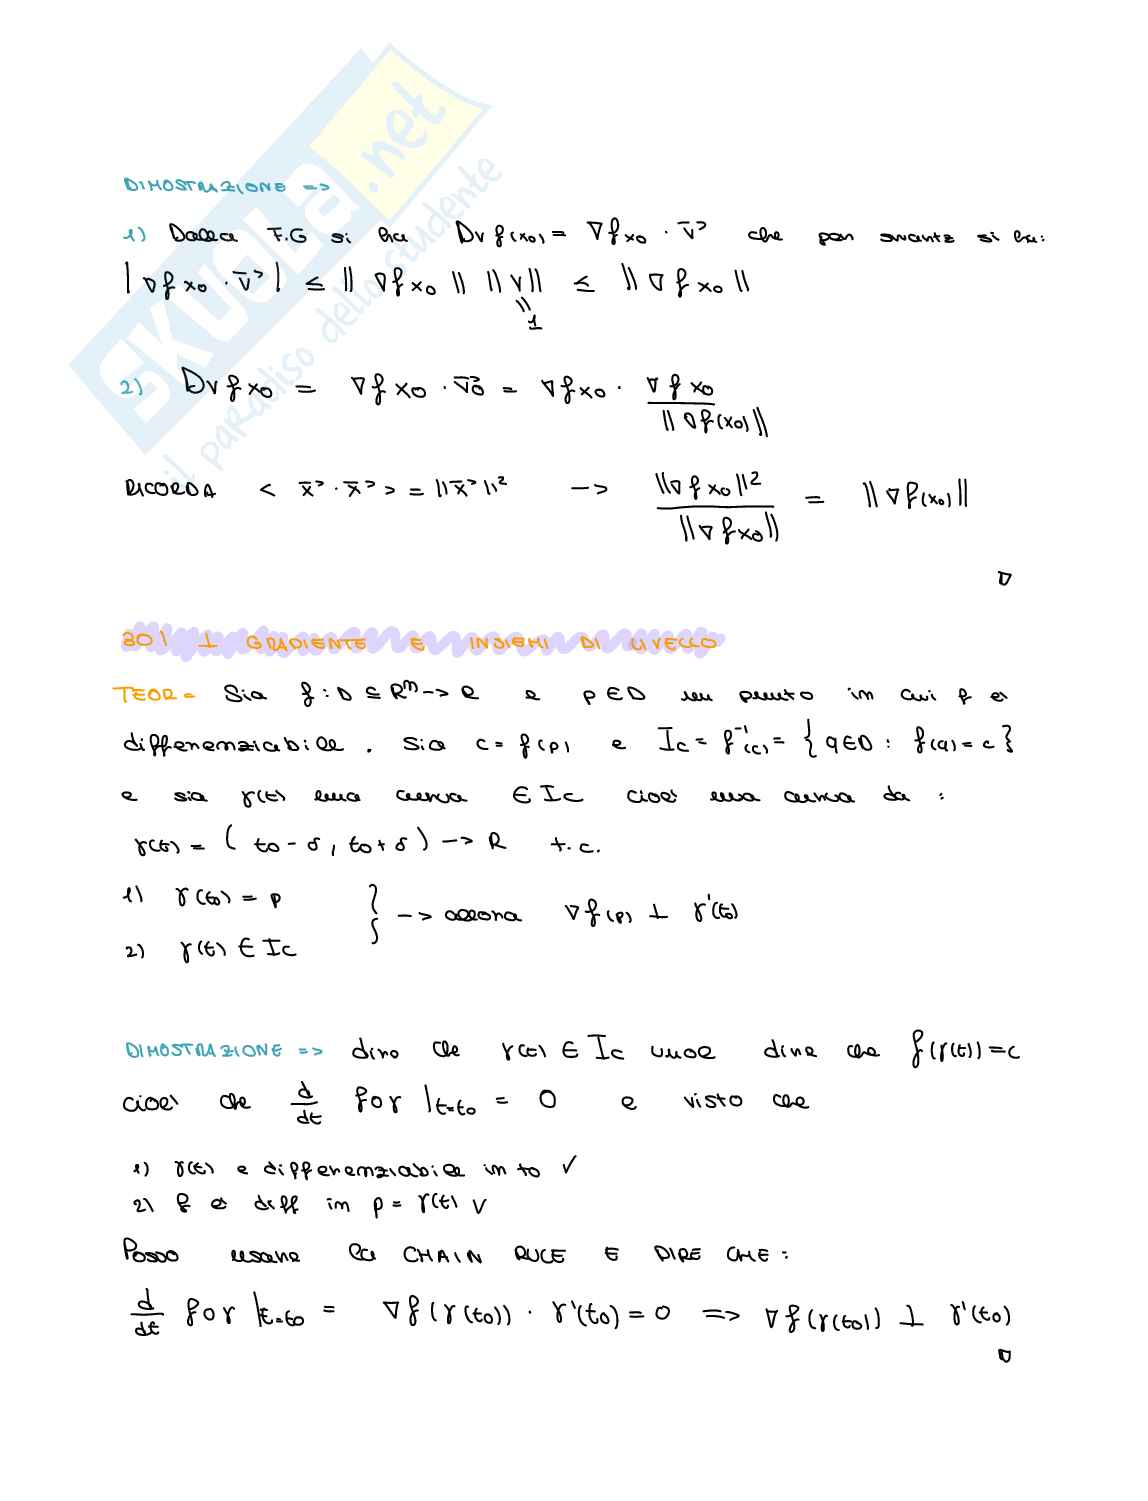 SKUOLA.net
il paradiso dello studente
DIMOSTRAZIONE =>
1) Dalla F.G si ha Dv f(x0) = ∇f x0 · v⃗ che per swartz si ha:
| ∇f x0 · v⃗ | ≤ || ∇f x0 || ||v|| ≤ || ∇f x0 ||
=
1
2) Dv f x0 = ∇f x0 · v⃗0 = ∇f x0 · ∇f x0 / ||∇f(x0)||
RICORDA < x⃗ · x⃗ > = ||x⃗||² -> ||∇f x0||² / ||∇f x0|| = ||∇f(x0)||
30) ⊥ GRADIENTE E INSIEMI DI LIVELLO
TEOR = Sia f : D ⊆ Rⁿ -> R e p ∈ D un punto in cui f è
differenziabile . Sia c = f(p) e Ic = f⁻¹(c) = { q ∈ D : f(q) = c }
e sia γ(t) una curva ∈ Ic cioè una curva da :
γ(t) = ( t0 - δ , t0 + δ ) -> R t.c.
1) γ(t0) = p
} -> allora ∇f(p) ⊥ γ'(t0)
2) γ(t) ∈ Ic
DIMOSTRAZIONE => dire che γ(t) ∈ Ic vuol dire che f(γ(t)) = c
cioè che d/dt f o γ |t=t0 = 0 e visto che
1) γ(t) è differenziabile in t0 ✓
2) f è diff in p = γ(t) ✓
Posso usare la CHAIN RULE E DIRE CHE :
d/dt f o γ |t=t0 = ∇f(γ(t0)) · γ'(t0) = 0 => ∇f(γ(t0)) ⊥ γ'(t0)